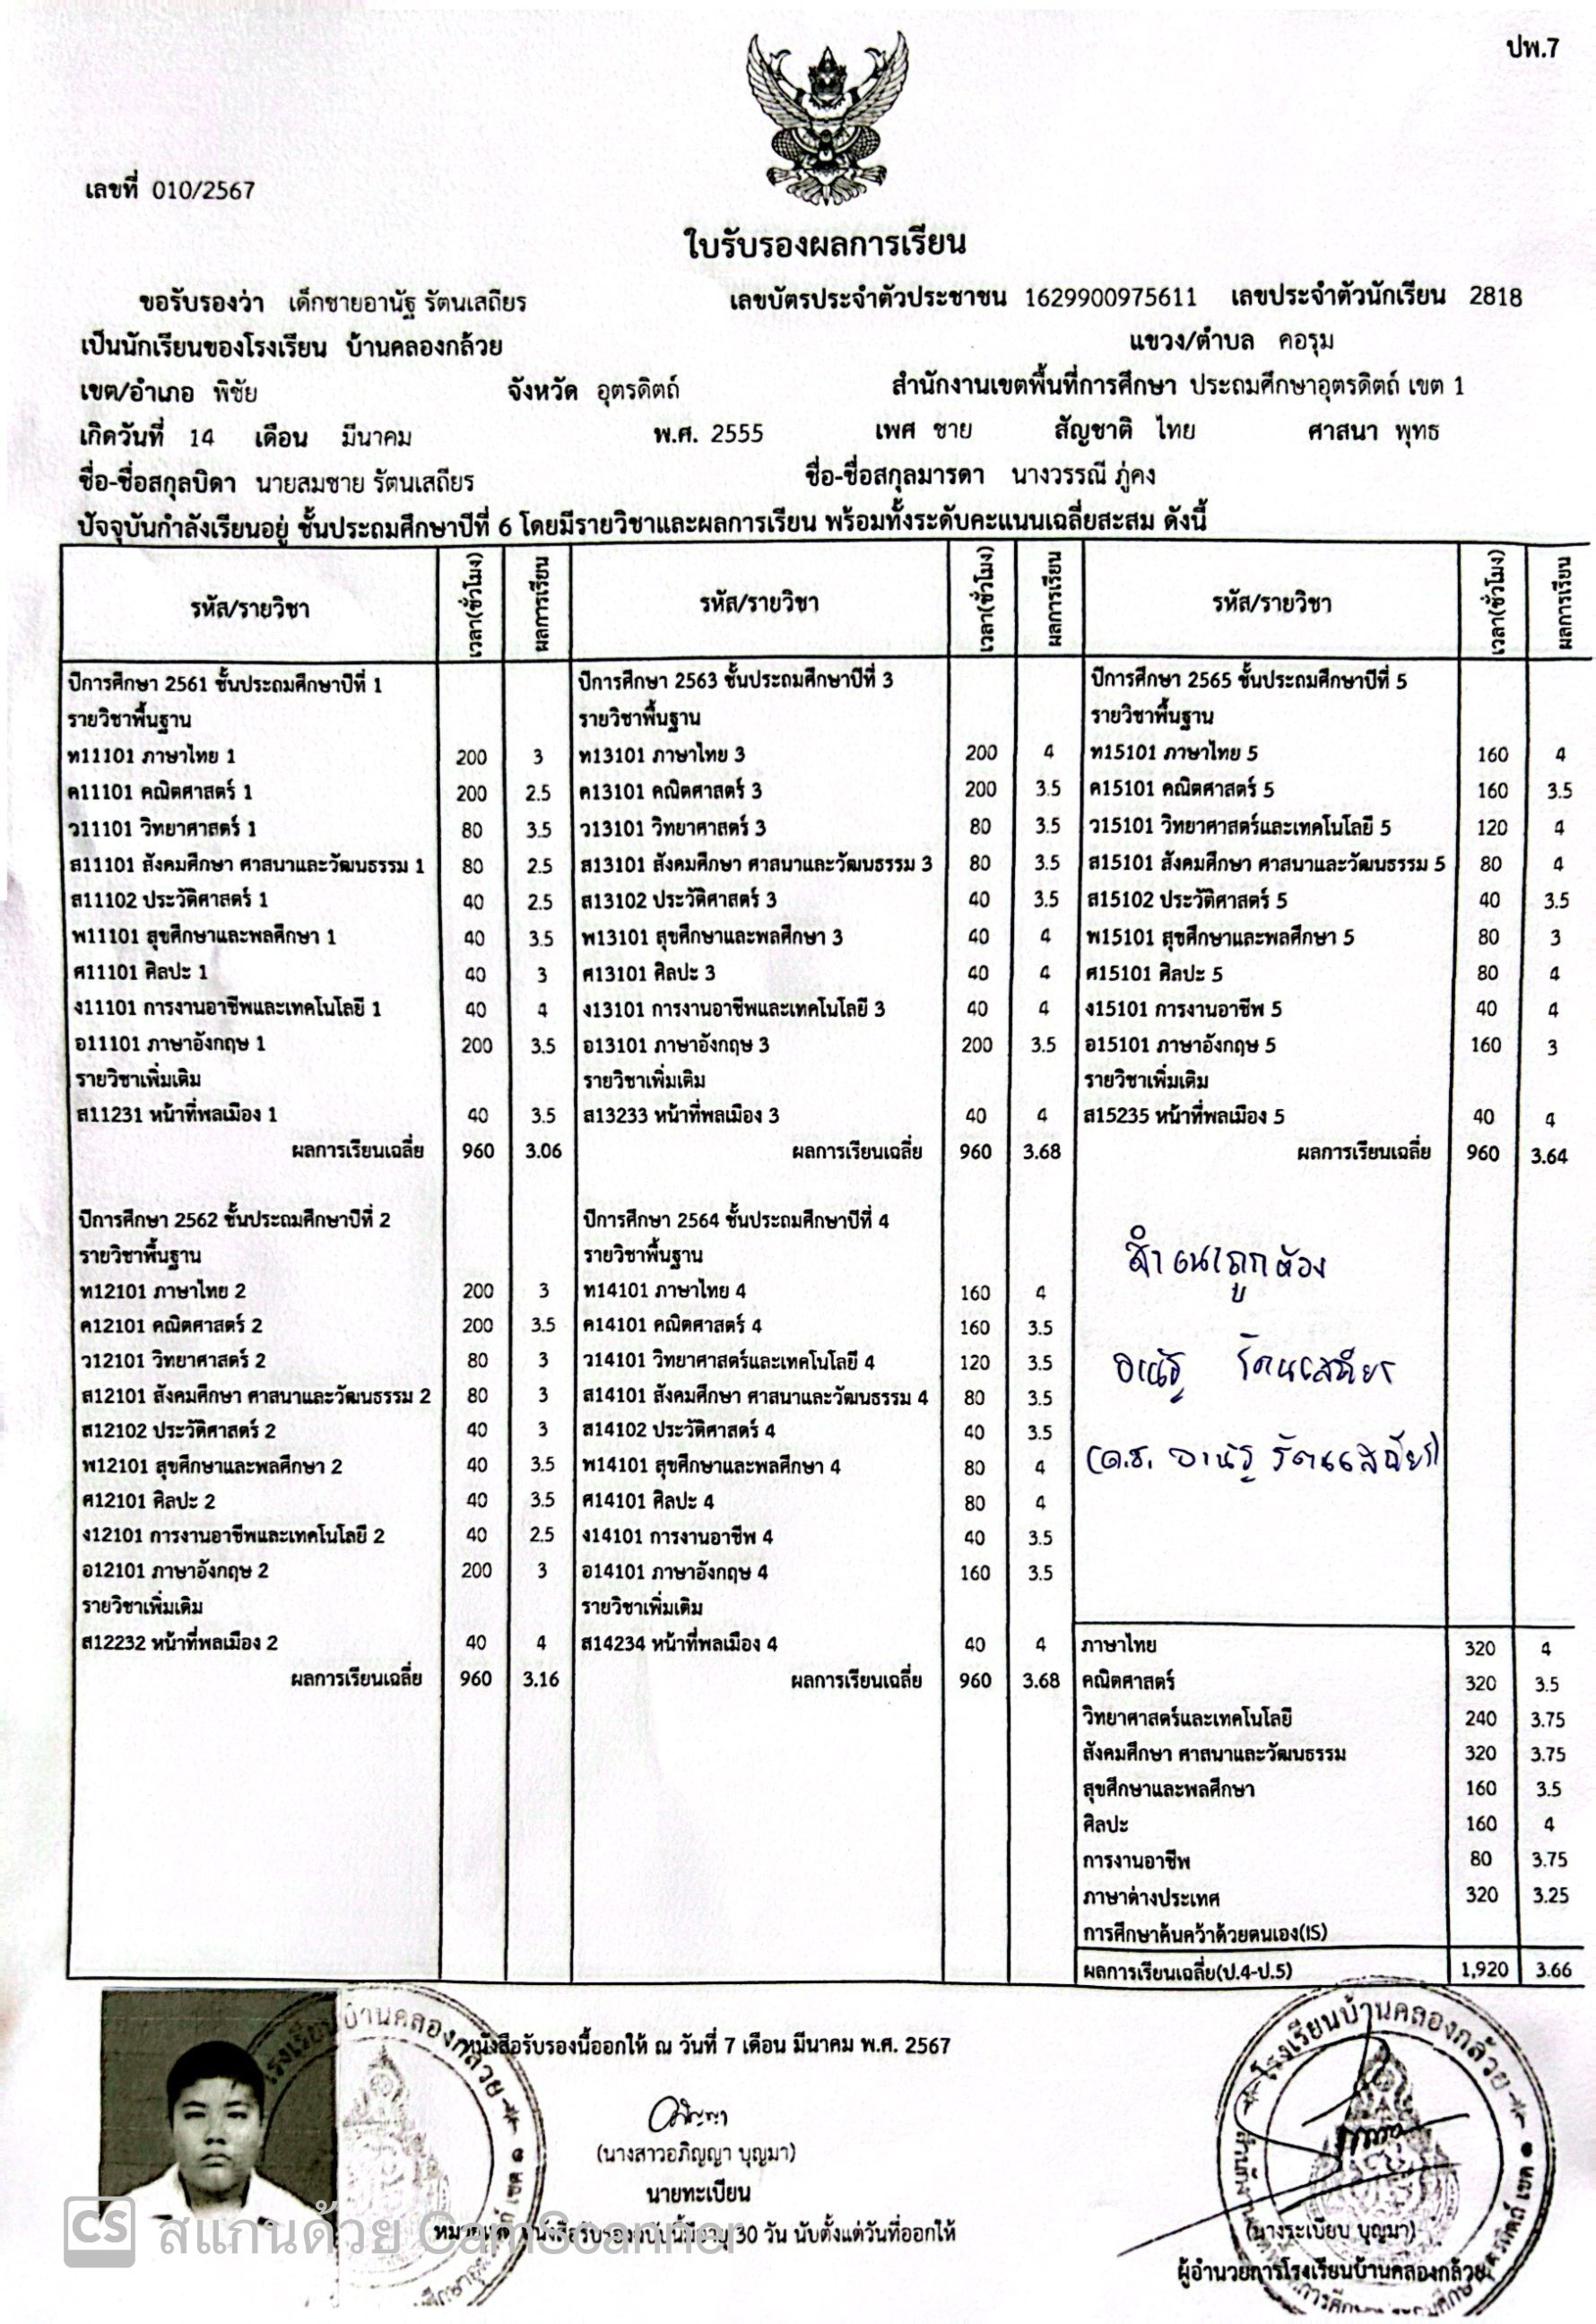 ปพ.7
เลขที่ 010/2567
ใบรับรองผลการเรียน
ขอรับรองว่า เด็กชายอานัฐ รัตนเสถียร เลขบัตรประจำตัวประชาชน 1629900975611 เลขประจำตัวนักเรียน 2818
เป็นนักเรียนของโรงเรียน บ้านคลองกล้วย แขวง/ตำบล คอรุม
เขต/อำเภอ พิชัย จังหวัด อุตรดิตถ์ สำนักงานเขตพื้นที่การศึกษา ประถมศึกษาอุตรดิตถ์ เขต 1
เกิดวันที่ 14 เดือน มีนาคม พ.ศ. 2555 เพศ ชาย สัญชาติ ไทย ศาสนา พุทธ
ชื่อ-ชื่อสกุลบิดา นายสมชาย รัตนเสถียร ชื่อ-ชื่อสกุลมารดา นางวรรณี ภู่คง
ปัจจุบันกำลังเรียนอยู่ ชั้นประถมศึกษาปีที่ 6 โดยมีรายวิชาและผลการเรียน พร้อมทั้งระดับคะแนนเฉลี่ยสะสม ดังนี้
รหัส/รายวิชา เวลา(ชั่วโมง) ผลการเรียน
ปีการศึกษา 2561 ชั้นประถมศึกษาปีที่ 1
รายวิชาพื้นฐาน
ท11101 ภาษาไทย 1 200 3
ค11101 คณิตศาสตร์ 1 200 2.5
ว11101 วิทยาศาสตร์ 1 80 3.5
ส11101 สังคมศึกษา ศาสนาและวัฒนธรรม 1 80 2.5
ส11102 ประวัติศาสตร์ 1 40 2.5
พ11101 สุขศึกษาและพลศึกษา 1 40 3.5
ศ11101 ศิลปะ 1 40 3
ง11101 การงานอาชีพและเทคโนโลยี 1 40 4
อ11101 ภาษาอังกฤษ 1 200 3.5
รายวิชาเพิ่มเติม
ส11231 หน้าที่พลเมือง 1 40 3.5
ผลการเรียนเฉลี่ย 960 3.06
ปีการศึกษา 2562 ชั้นประถมศึกษาปีที่ 2
รายวิชาพื้นฐาน
ท12101 ภาษาไทย 2 200 3
ค12101 คณิตศาสตร์ 2 200 3.5
ว12101 วิทยาศาสตร์ 2 80 3
ส12101 สังคมศึกษา ศาสนาและวัฒนธรรม 2 80 3
ส12102 ประวัติศาสตร์ 2 40 3
พ12101 สุขศึกษาและพลศึกษา 2 40 3.5
ศ12101 ศิลปะ 2 40 3.5
ง12101 การงานอาชีพและเทคโนโลยี 2 40 2.5
อ12101 ภาษาอังกฤษ 2 200 3
รายวิชาเพิ่มเติม
ส12232 หน้าที่พลเมือง 2 40 4
ผลการเรียนเฉลี่ย 960 3.16
รหัส/รายวิชา เวลา(ชั่วโมง) ผลการเรียน
ปีการศึกษา 2563 ชั้นประถมศึกษาปีที่ 3
รายวิชาพื้นฐาน
ท13101 ภาษาไทย 3 200 4
ค13101 คณิตศาสตร์ 3 200 3.5
ว13101 วิทยาศาสตร์ 3 80 3.5
ส13101 สังคมศึกษา ศาสนาและวัฒนธรรม 3 80 3.5
ส13102 ประวัติศาสตร์ 3 40 3.5
พ13101 สุขศึกษาและพลศึกษา 3 40 4
ศ13101 ศิลปะ 3 40 4
ง13101 การงานอาชีพและเทคโนโลยี 3 40 4
อ13101 ภาษาอังกฤษ 3 200 3.5
รายวิชาเพิ่มเติม
ส13233 หน้าที่พลเมือง 3 40 4
ผลการเรียนเฉลี่ย 960 3.68
ปีการศึกษา 2564 ชั้นประถมศึกษาปีที่ 4
รายวิชาพื้นฐาน
ท14101 ภาษาไทย 4 160 4
ค14101 คณิตศาสตร์ 4 160 3.5
ว14101 วิทยาศาสตร์และเทคโนโลยี 4 120 3.5
ส14101 สังคมศึกษา ศาสนาและวัฒนธรรม 4 80 3.5
ส14102 ประวัติศาสตร์ 4 40 3.5
พ14101 สุขศึกษาและพลศึกษา 4 80 4
ศ14101 ศิลปะ 4 80 4
ง14101 การงานอาชีพ 4 40 3.5
อ14101 ภาษาอังกฤษ 4 160 3.5
รายวิชาเพิ่มเติม
ส14234 หน้าที่พลเมือง 4 40 4
ผลการเรียนเฉลี่ย 960 3.68
รหัส/รายวิชา เวลา(ชั่วโมง) ผลการเรียน
ปีการศึกษา 2565 ชั้นประถมศึกษาปีที่ 5
รายวิชาพื้นฐาน
ท15101 ภาษาไทย 5 160 4
ค15101 คณิตศาสตร์ 5 160 3.5
ว15101 วิทยาศาสตร์และเทคโนโลยี 5 120 4
ส15101 สังคมศึกษา ศาสนาและวัฒนธรรม 5 80 4
ส15102 ประวัติศาสตร์ 5 40 3.5
พ15101 สุขศึกษาและพลศึกษา 5 80 3
ศ15101 ศิลปะ 5 80 4
ง15101 การงานอาชีพ 5 40 4
อ15101 ภาษาอังกฤษ 5 160 3
รายวิชาเพิ่มเติม
ส15235 หน้าที่พลเมือง 5 40 4
ผลการเรียนเฉลี่ย 960 3.64
สำเนาถูกต้อง
อานัฐ รัตนเสถียร
(ด.ช. อานัฐ รัตนเสถียร)
ภาษาไทย 320 4
คณิตศาสตร์ 320 3.5
วิทยาศาสตร์และเทคโนโลยี 240 3.75
สังคมศึกษา ศาสนาและวัฒนธรรม 320 3.75
สุขศึกษาและพลศึกษา 160 3.5
ศิลปะ 160 4
การงานอาชีพ 80 3.75
ภาษาต่างประเทศ 320 3.25
การศึกษาค้นคว้าด้วยตนเอง(IS)
ผลการเรียนเฉลี่ย(ป.4-ป.5) 1,920 3.66
โรงเรียนบ้านคลองกล้วย
หนังสือรับรองนี้ออกให้ ณ วันที่ 7 เดือน มีนาคม พ.ศ. 2567
อภิญญา
(นางสาวอภิญญา บุญมา)
นายทะเบียน
หมายเหตุ หนังสือรับรองฉบับนี้มีอายุ 30 วัน นับตั้งแต่วันที่ออกให้
โรงเรียนบ้านคลองกล้วย
(นางระเบียบ บุญมา)
ผู้อำนวยการโรงเรียนบ้านคลองกล้วย
CS สแกนด้วย CamScanner